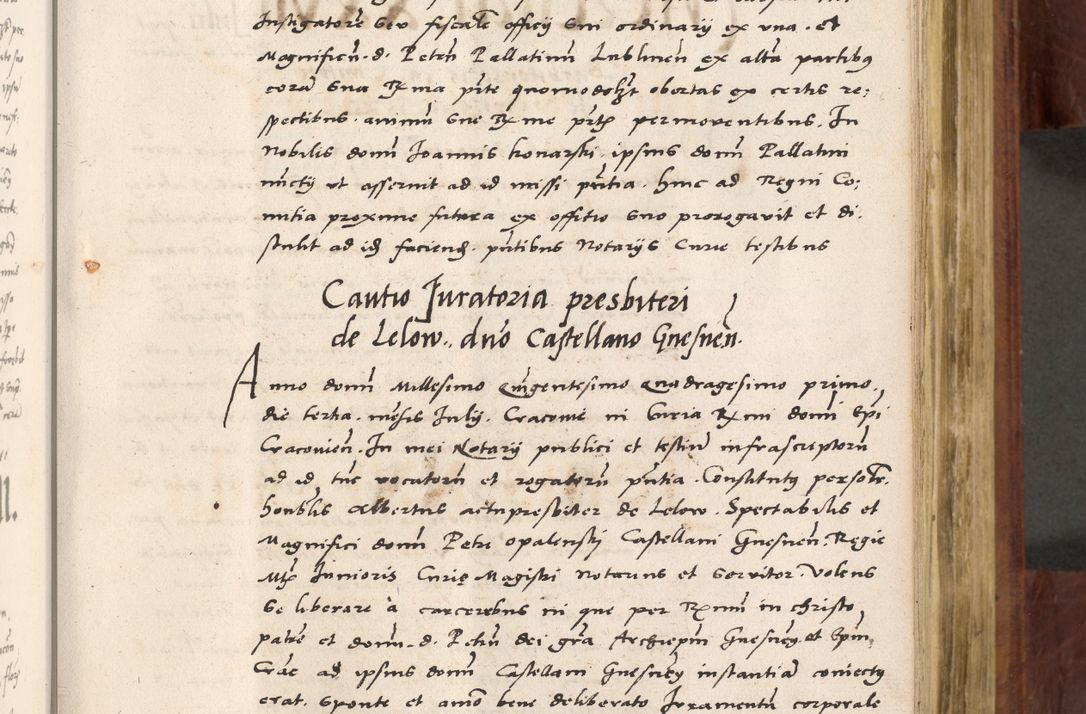 Instigatorē seu fiscalē officij sui ordinarij ex una. et
Magnificū. d. Petrū Pallatinū Lublinen̄ ex altā partibus
corā sua Rma pn̄te quomodolz̄t obortas ex certis re;
spectibus. animū sue Rx me pn̄ter permoventibus. In
Nobilis domī Ioannis konarski. ipsius domī Pallatini
nuncij ut asseruit ad id missi pn̄tia. hinc ad Regni Co;
mitia proxime futura ex offitio suo prorogavit et di.
stulit ad id faciend. pn̄tibus Notarijs Curie testibus
Cautio Juratoria presbiteri
de Lelow., dnō Castellano Gnesnen̄.
Anno domī Millesimo Quingentesimo quadragesimo primo,
die tertia. mēsis Iulij. Cracovie in Curia Rx mi domī Epi
Cracovien̄. In mei Notarij publici et testiū infrascriptorū
ad id tūc vocatorū et rogatorū pn̄tia. Constitutus personalr̄.
honb̄lis Albertus actu presbiter de Lelow. Spectabilis et
Magnifici domī Petri opalenski Castellani Gnesnen̄. Regie
Mtis Iunioris Curię Magistri Notarius et servitor. Volens
se liberare à carceribus in que per Rx mum in christo
patrē et domū. d. Petrū dei grā Archiepm̄ Gnesnen̄. et Epm̄,
Crac̄ ad ipsius domī Castellani Gnesnen̄ instantiā coniectus
erat. sponte et animo bene deliberato Iuramentū corporale